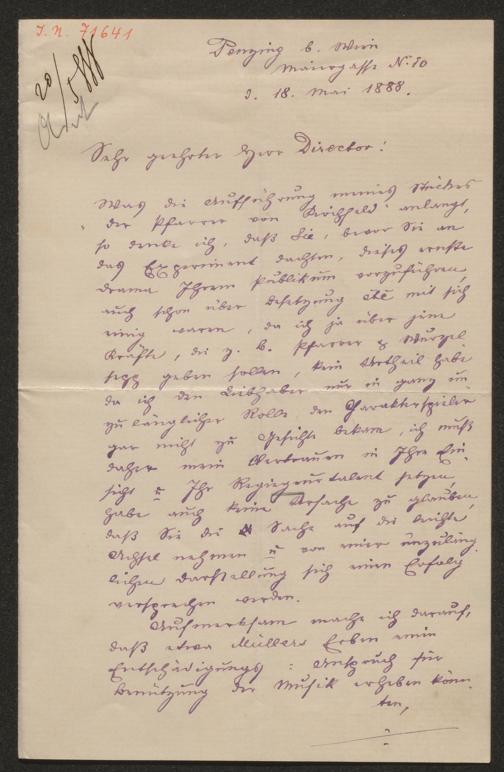 I. N. 71641
Penzing b. Wien
Maurergasse No. 10
d. 18. Mai 1888.
Sehr geehrter Herr Director!
Was die Aufführung meines Stückes
„der Pfarrer von Kirchfeld" anlangt,
so denke ich, daß Sie, bevor Sie an
das Experiment dachten, dieses ernste
Drama Ihrem Publikum vorzuführen,
auch schon über Besetzung etc mit sich
einig waren, da ich ja über jene
Kräfte, die z. B. Pfarrer & Wurzel-
sepp geben sollen, kein Urtheil habe
da ich den Liebhaber nur in ganz un-
zulänglicher Rolle den Charakterspieler
gar nicht zu Gesichte bekam, ich muß
daher mein Vertrauen in Ihre Ein-
sicht u Ihr Regiegeurtalent setzen,
habe auch keine Ursache zu glauben,
daß Sie die Sache auf die leichte
Achsel nehmen u von einer unzuläng-
lichen Darstellung sich einen Erfolg
versprechen werden.
Aufmerksam mache ich darauf,
daß etwa Müllers Erben einen
Entschädigungs-Anspruch für
Benützung der Musik erheben könn-
ten,